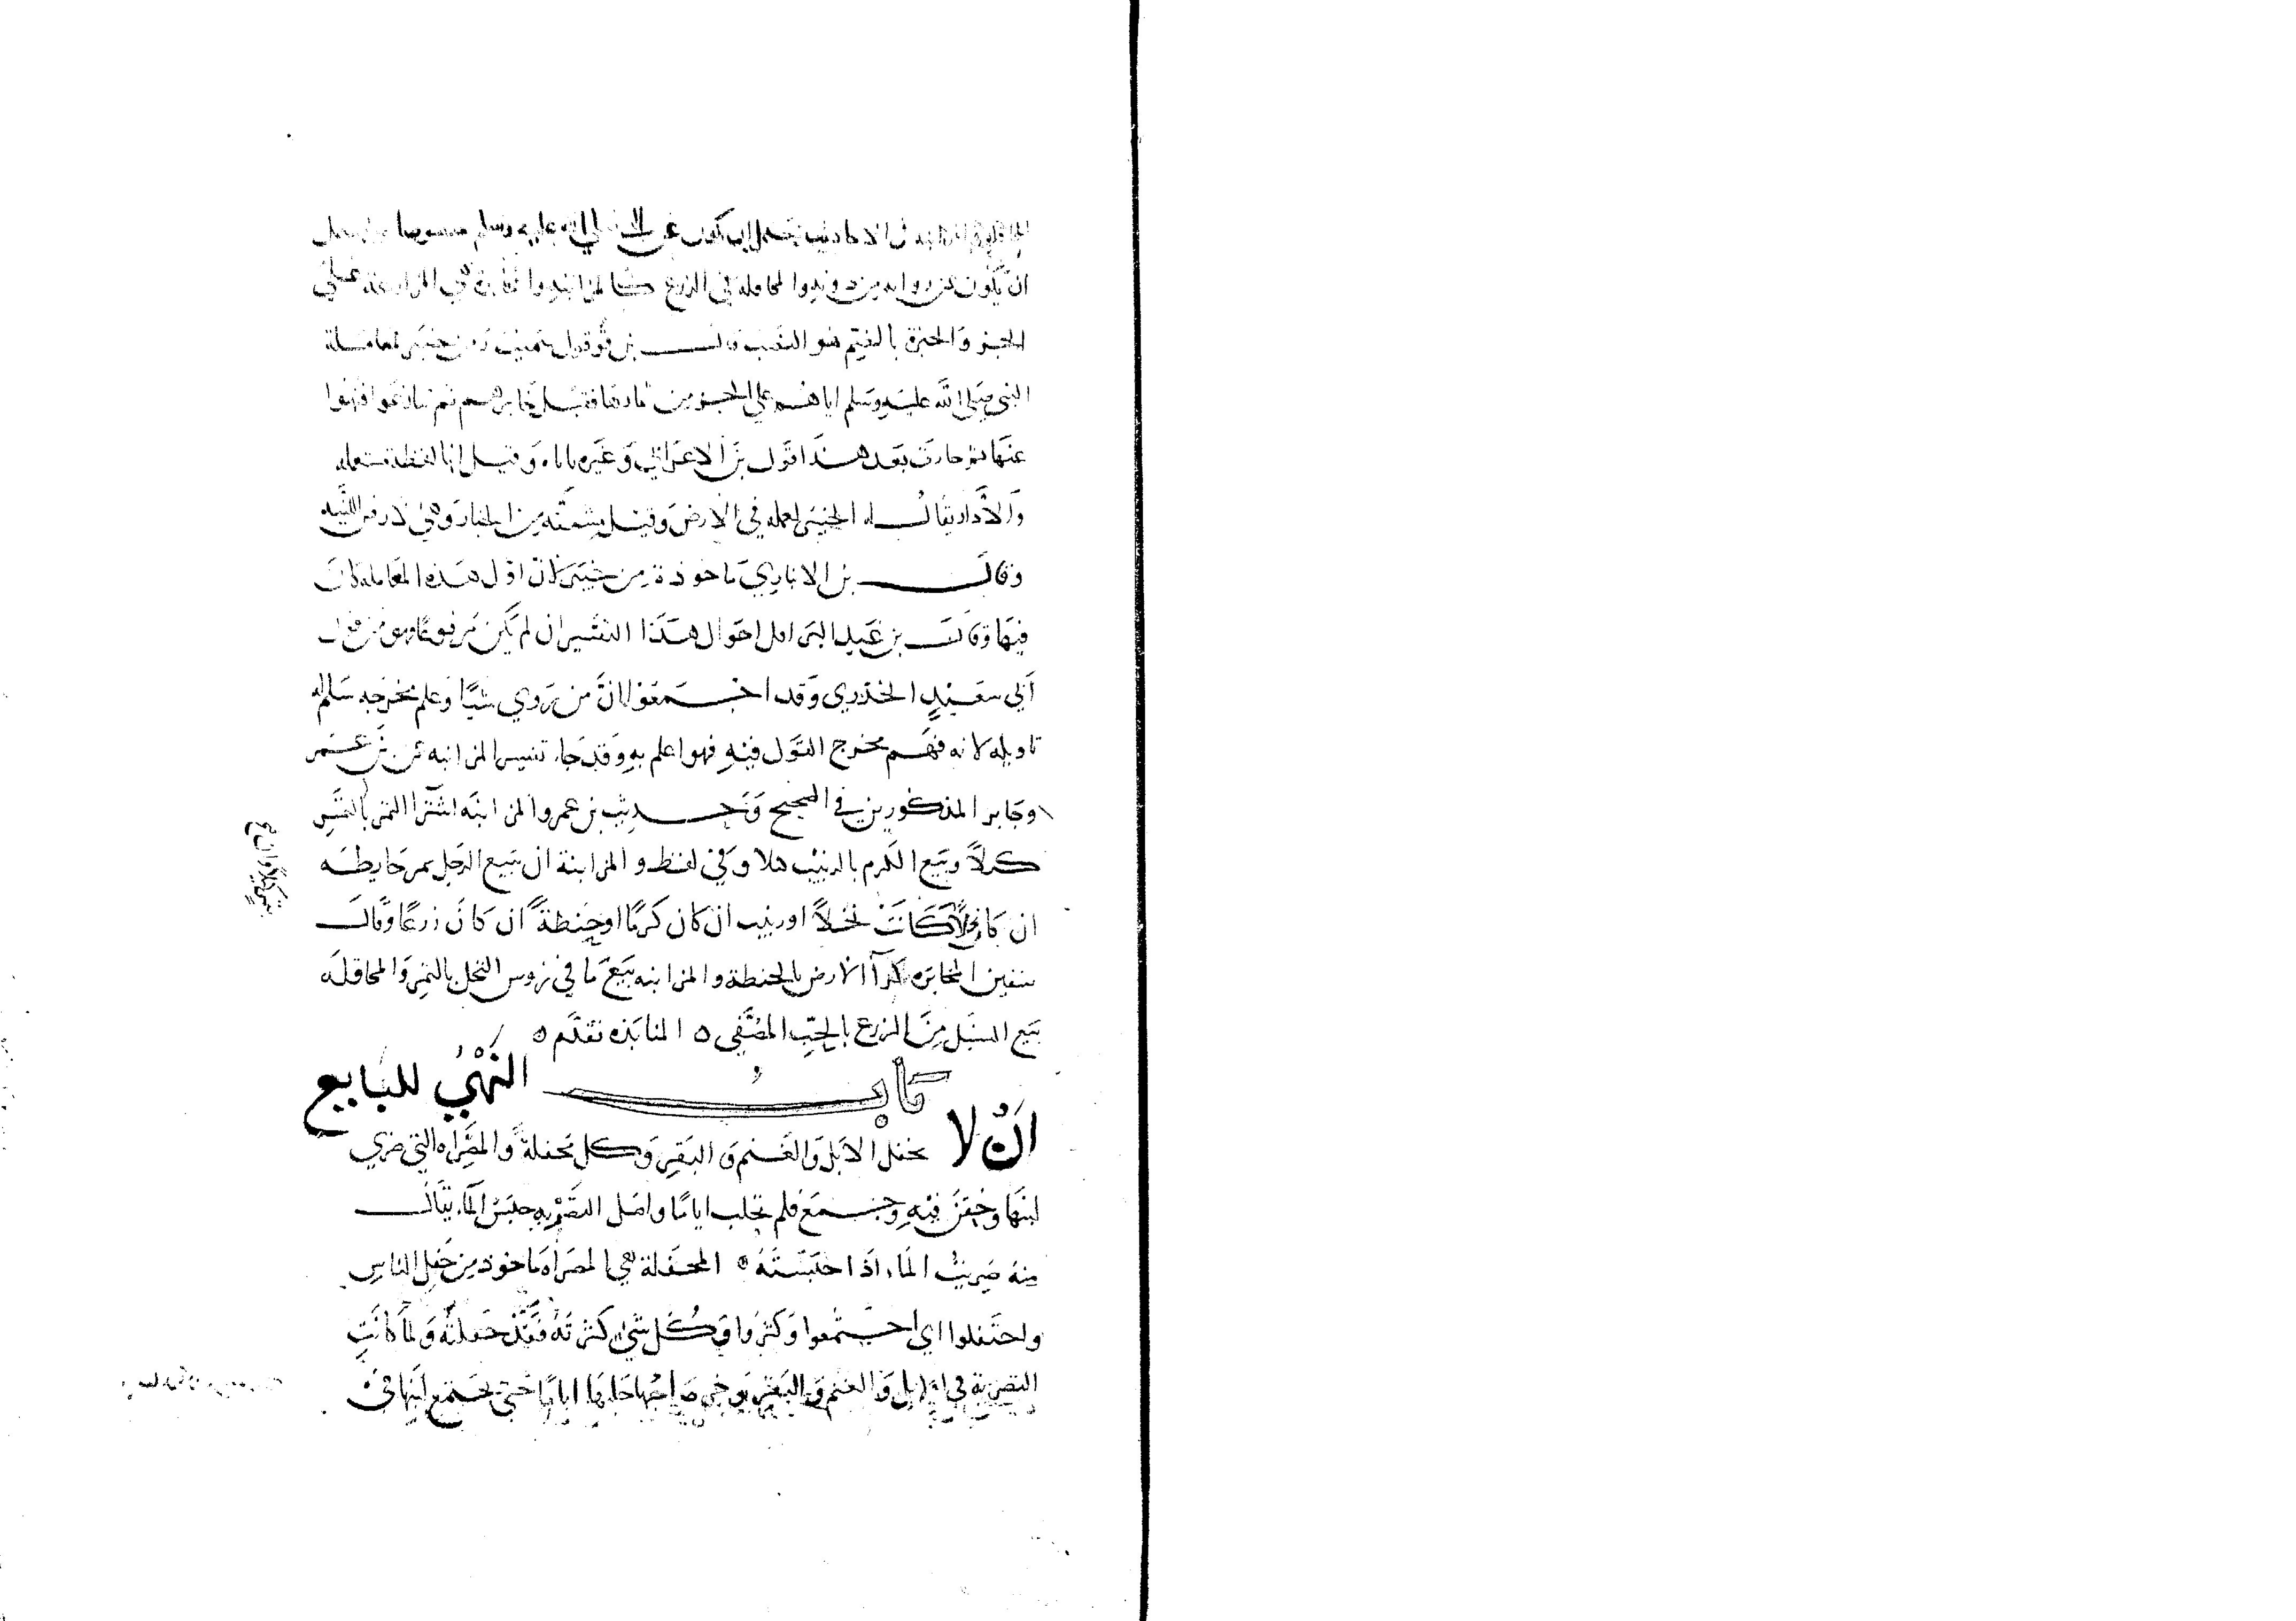 عليه وسلم
ان يكون من رواية من دونه والمحاقلة في الزرع كالمزابنة
الخبر والخبرة بالضم هو النصيب قالـــ بن قرقول سميت من خيبر لمعاملة
النبي صلى الله عليه وسلم اياهم على الجزء من ثمارها فقيل خابرهم ثم تنازعوا فنهوا
عنها ثم جازت بعد هذا قول بن الاعرابي وغيره ياباه وقيل انها لفظة مستعمله
والاكار يقالـــ له الخبير لعمله في الارض وقيل مشتقه من الخبار وهي الارض اللينه
وقالـــ بن الانباري ماخوذة من خيبر لان اول هذه المعامله كانت
فيها وقالـــ بن عبد البر اقل احوال هذا التفسير ان لم يكن مرفوعا فهو من قول
أبي سعيد الخدري وقد اجمعوا ان من روي شيا وعلم مخرجه سلم له
تاويله لانه فهم مخرج القول فيه فهو اعلم به وقد جاء تفسير المزابنه عن بن عمر
وجابر المذكورين في الصحيح وحديث بن عمر والمزابنه اشترا الثمر بالتمر
كيلا وبيع الكرم بالزبيب كيلا وفي لفظ والمزابنة ان يبيع الرجل ثمر حايطه
ان كان نخلا كانت نخلاً او زبيب ان كان كرمًا او حنطةً ان كان زرعًا وقالـــ
سفين المخابره كرآ الارض بالحنطة والمزابنه بيع ما في روس النخل بالتمر والمحاقله
بيع السنبل من الزرع بالحب المصفى ه المنابذه تقدم ه
بابـــ النهي للبايع
ان لا يحفل الابل والغنم والبقر وكل محفلة والمصراه التي صري
لبنها وحقن فيه وجمع فلم تحلب اياما واصل التصريه حبس الماء يقالـــ
منه صريت الماء اذا احتبسته ه المحفلة هي المصراه ماخوذ من حفل الناس
واحتفلوا اي اجتمعوا وكثروا وكل شيء كثرته فقد حفلته ولما كانت
التصرية في الابل والغنم والبقر يوخر صاحبها حلبها اياما حتى يجتمع لبنها في